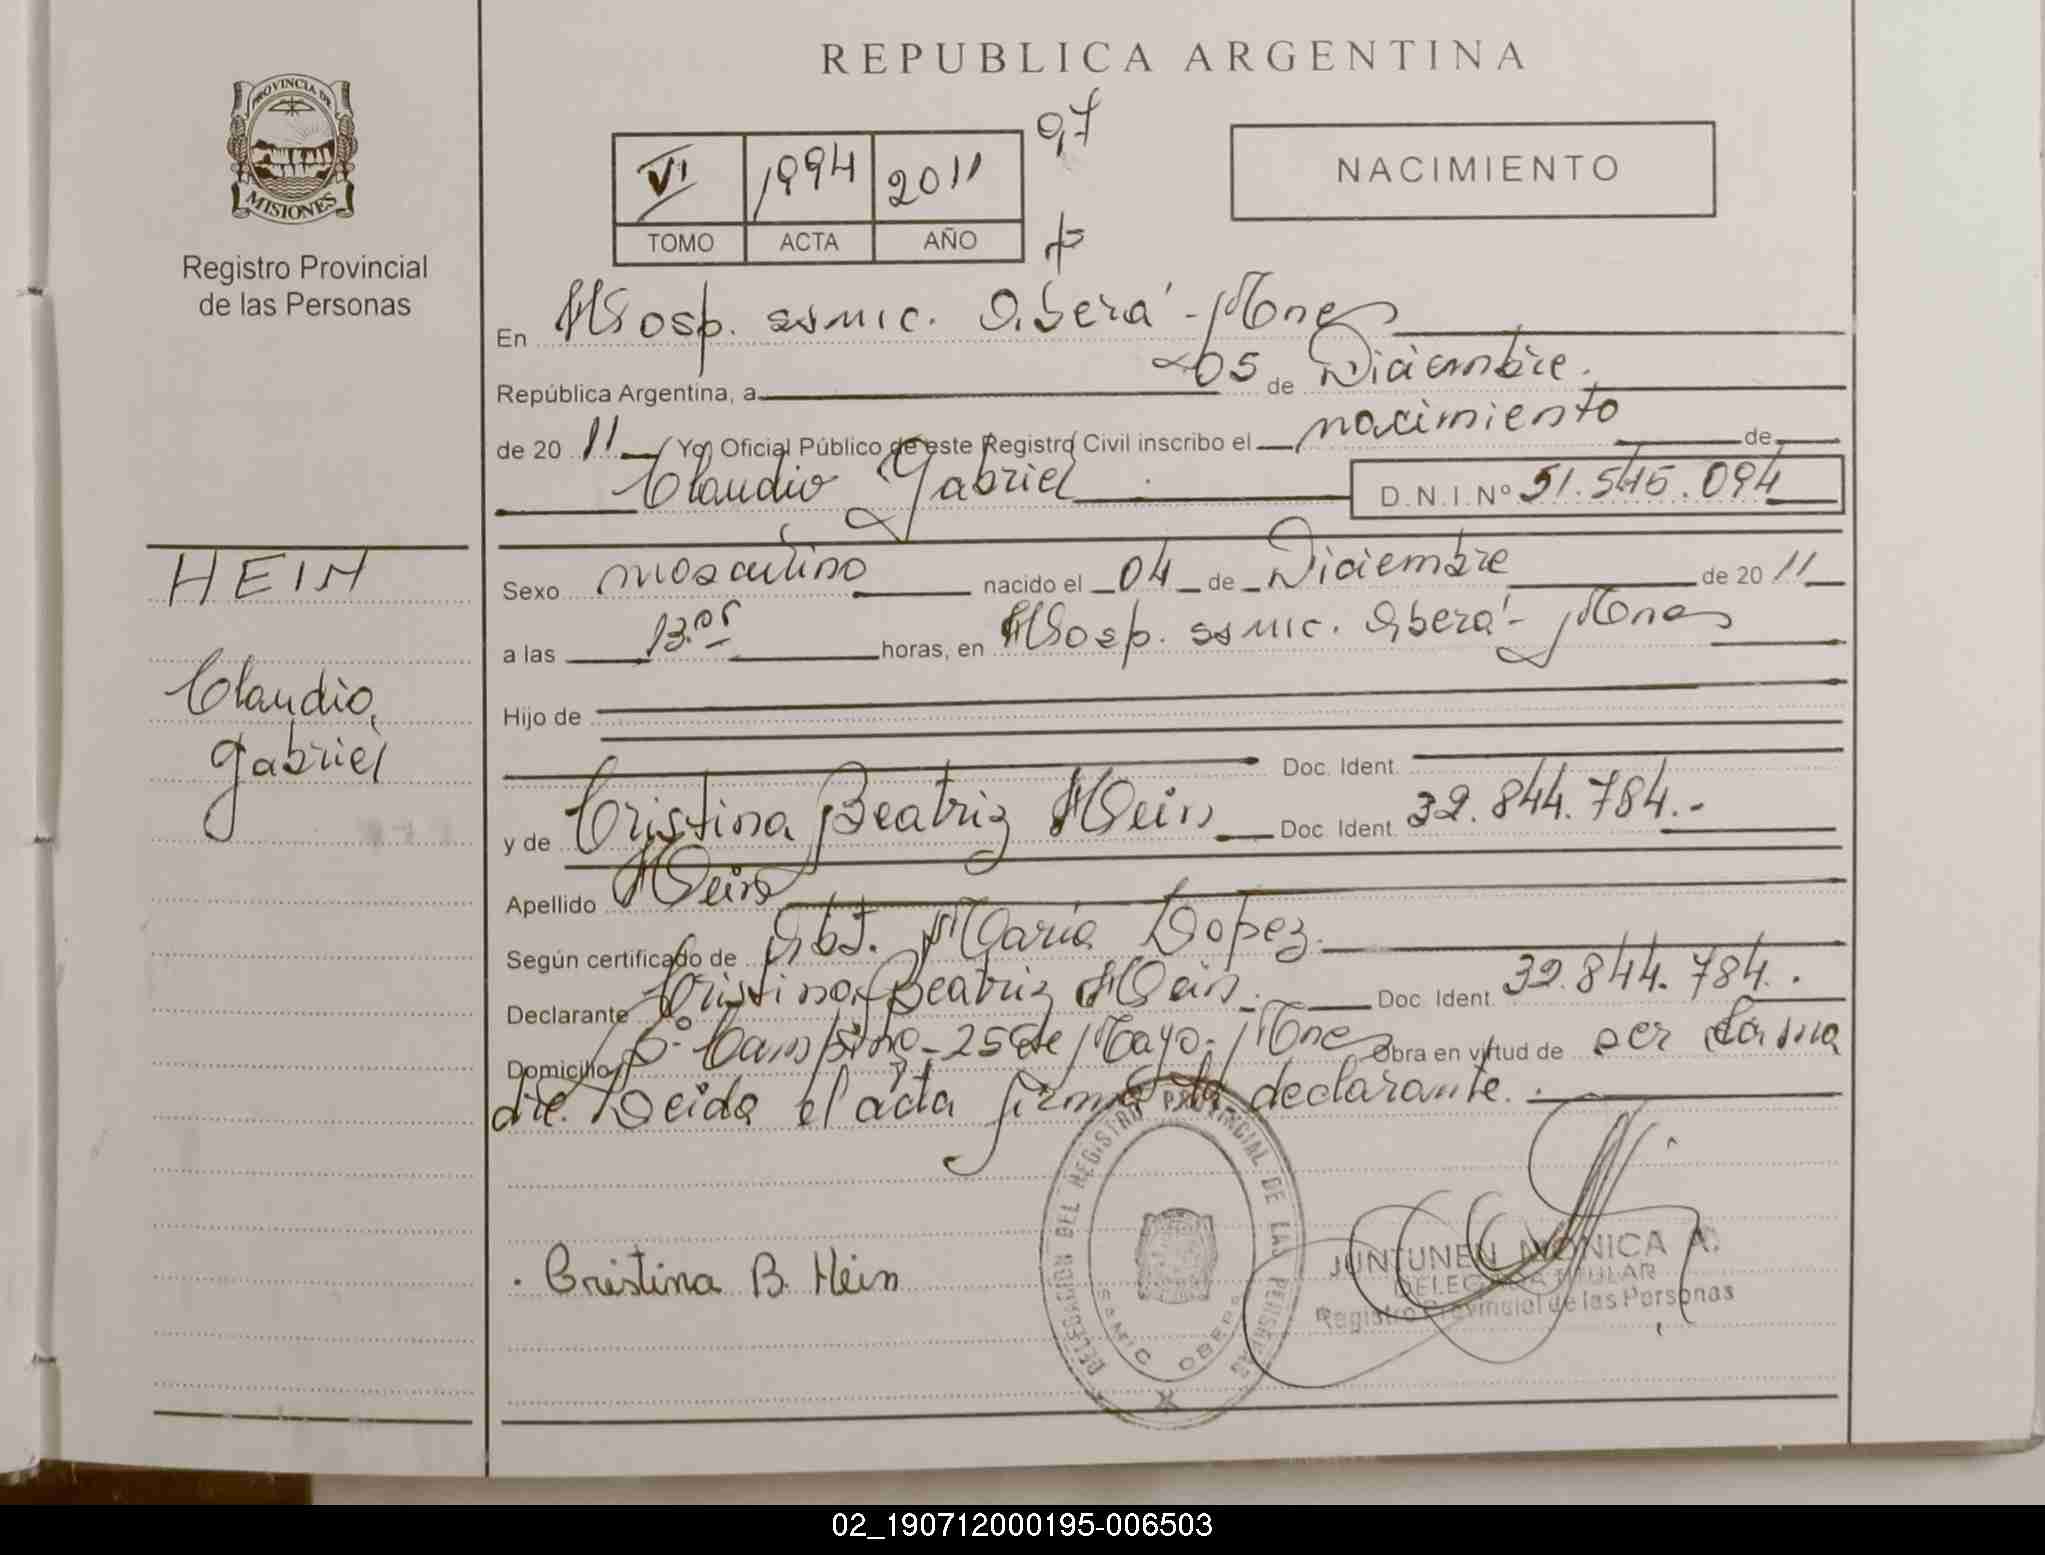 REPUBLICA ARGENTINA
PROVINCIA DE
MISIONES
Registro Provincial
de las Personas
97
VI 1994 2011
TOMO ACTA AÑO
NACIMIENTO
En Hosp. samic. Oberá - Mnes
República Argentina, a 05 de Diciembre.
de 20 11 Yo, Oficial Público de este Registro Civil inscribo el nacimiento de
Claudio Gabriel D.N.I.Nº 51.545.094
HEIN
Claudio,
Gabriel
Sexo masculino nacido el 04 de Diciembre de 20 11
a las 13.05 horas, en Hosp. samic. Oberá - Mnes
Hijo de
Doc. Ident.
y de Cristina Beatriz Hein Doc. Ident. 32.844.784.-
Apellido Hein
Según certificado de Obst. María Lopez.
Declarante Cristina Beatriz Hein. Doc. Ident. 32.844.784.
Domicilio Bº Campiña - 25 de Mayo - Mnes Obra en virtud de ser la ma
dre. Leida el acta firma la declarante.
DELEGACION DEL REGISTRO PROVINCIAL DE LAS PERSONAS
SAMIC OBERA
. Cristina B. Hein
JUNTUNEN MONICA A.
DELEGADA TITULAR
Registro Provincial de las Personas
02_190712000195-006503